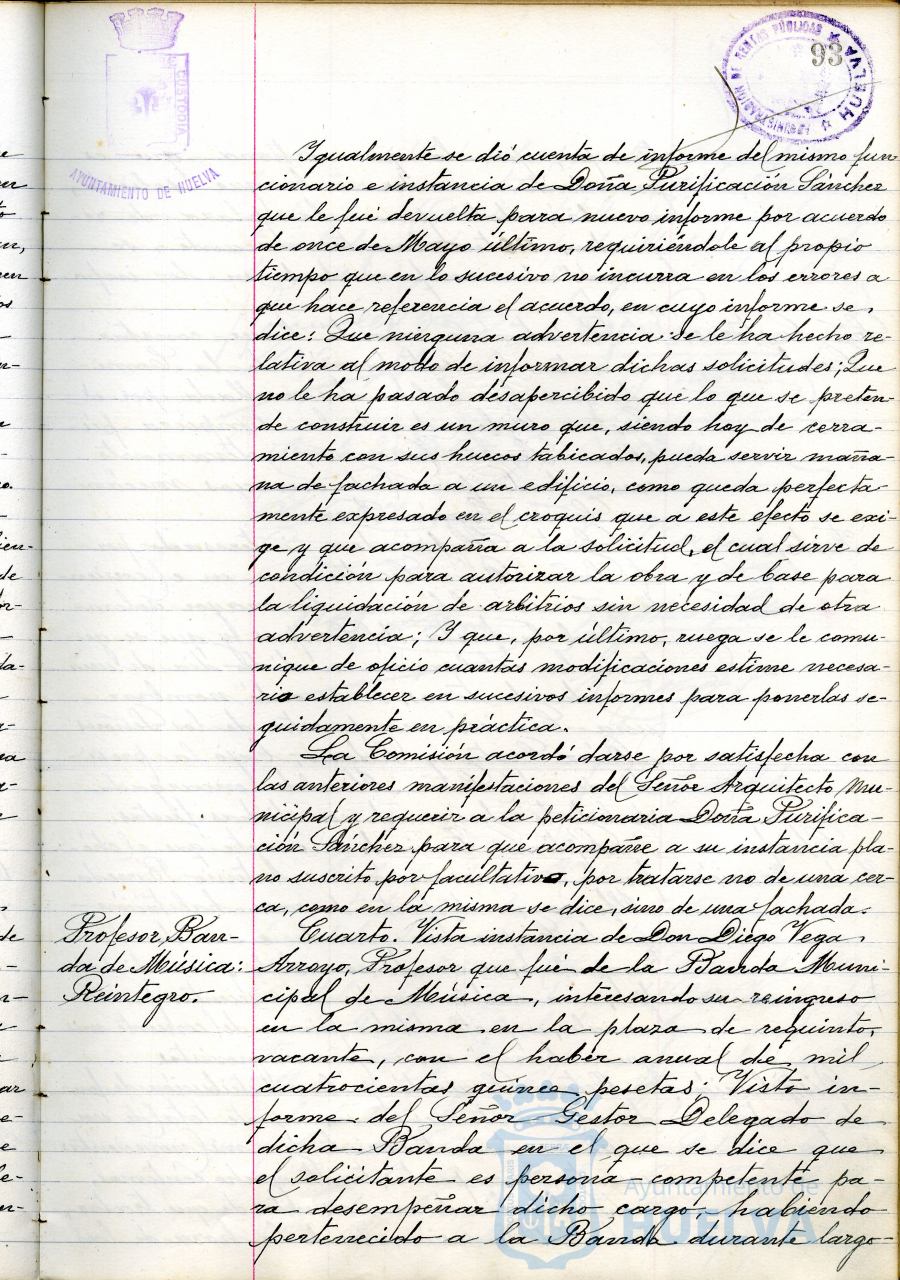 93
CUSTODIA
AYUNTAMIENTO DE HUELVA
ADMINISTRACION DE RENTAS PÚBLICAS
HUELVA
Igualmente se dió cuenta de informe del mismo fun
cionario e instancia de Doña Purificación Sánchez
que le fué devuelta para nuevo informe por acuerdo
de once de Mayo último, requiriéndole al propio
tiempo que en lo sucesivo no incurra en los errores a
que hace referencia el acuerdo, en cuyo informe se
dice: Que ninguna advertencia se le ha hecho re-
lativa al modo de informar dichas solicitudes; Que
no le ha pasado desapercibido que lo que se preten-
de construir es un muro que, siendo hoy de cerra-
miento con sus huecos tabicados, pueda servir maña-
na de fachada a un edificio, como queda perfecta-
mente expresado en el croquis que a este efecto se exi-
ge y que acompaña a la solicitud, el cual sirve de
condición para autorizar la obra y de base para
la liquidación de arbitrios sin necesidad de otra
advertencia; Y que, por último, ruega se le comu-
nique de oficio cuantas modificaciones estime necesa-
rio establecer en sucesivos informes para ponerlas se-
guidamente en práctica.
La Comisión acordó darse por satisfecha con
las anteriores manifestaciones del Señor Arquitecto Mu-
nicipal y requerir a la peticionaria Doña Purifica-
ción Sánchez para que acompañe a su instancia pla-
no suscrito por facultativo, por tratarse no de una cer-
ca, como en la misma se dice, sino de una fachada.
Profesor Ban-
da de Música:
Reintegro.
Cuarto. Vista instancia de Don Diego Vega
Arroyo, Profesor que fué de la Banda Muni-
cipal de Música, interesando su reingreso
en la misma en la plaza de requinto,
vacante, con el haber anual de mil
cuatrocientas quince pesetas; Visto in-
forme del Señor Gestor Delegado de
dicha Banda en el que se dice que
el solicitante es persona competente pa-
ra desempeñar dicho cargo, habiendo
pertenecido a la Banda durante largo-
Ayuntamiento de
HUELVA